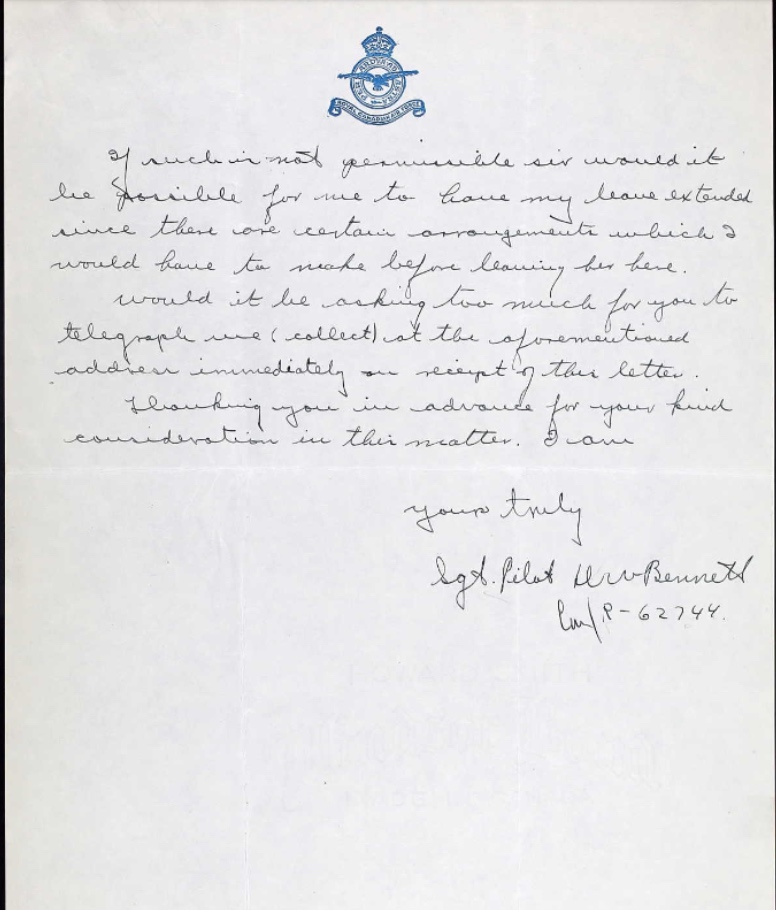 ROYAL CANADIAN AIR FORCE
If such is not permissible sir would it
be possible for me to have my leave extended
since there are certain arrangements which I
would have to make before leaving her here.
Would it be asking too much for you to
telegraph me (collect) at the aforementioned
address immediately on receipt of this letter.
Thanking you in advance for your kind
consideration in this matter. I am
Yours truly
Sgt. Pilot Bennett
R-62744.